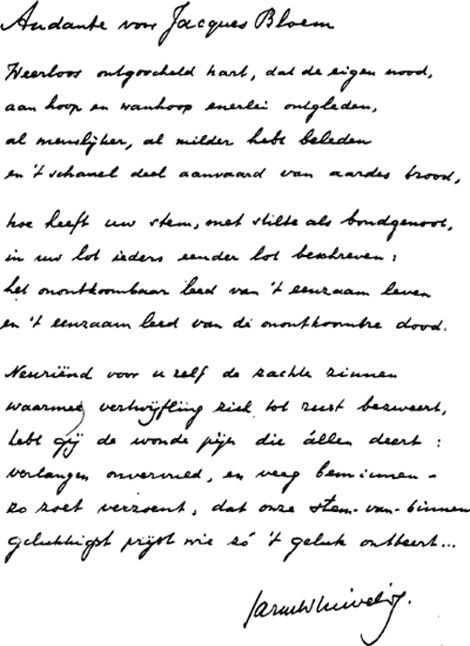 Andante voor Jacques Bloem
Weerloos ontgoocheld hart, dat de eigen nood,
aan hoop en wanhoop enerlei ontgleden,
al menslijker, al milder hebt beleden
en 't schamel deel aanvaard van aardes brood,
hoe heeft uw stem, met stilte als bondgenoot,
in uw lot ieders eender lot beschreven:
het onontkoombaar leed van 't eenzaam leven
en 't eenzaam leed van de onontkoombre dood.
Neuriënd voor u zelf de zachte zinnen
waarmee vertwijfling zich tot rust bezweert,
hebt gij de wonde pijn die állen deert:
verlangen onvervuld, en veeg beminnen –
zo zoet verzoent, dat onze stem-van-binnen
gelukkigst prijst wie zó 't geluk ontbeert...
Garmt Stuiveling.